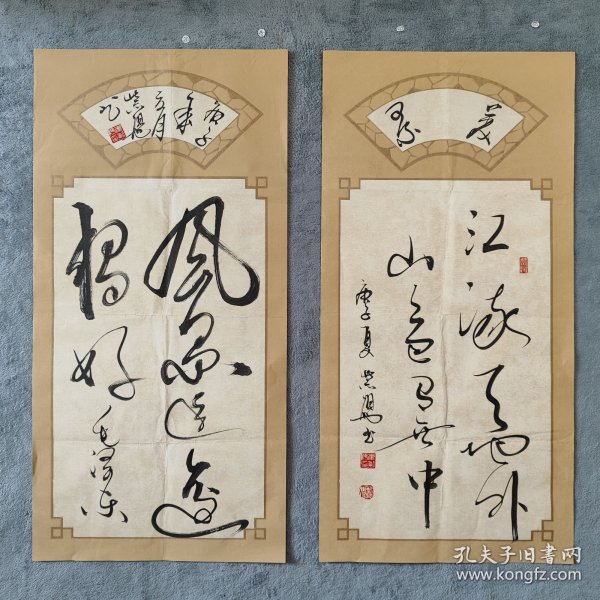 庚子
年
五月
風景这邊
独好
毛泽东
江流天地外
山色有无中
庚子夏
書
孔夫子旧书网
www.kongfz.com